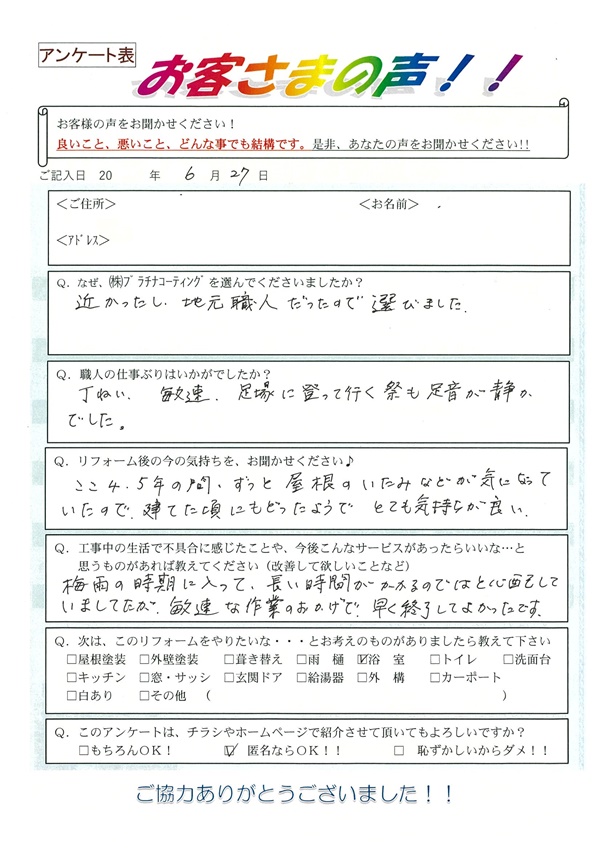 アンケート表
お客さまの声！！
お客様の声をお聞かせください！
良いこと、悪いこと、どんな事でも結構です。是非、あなたの声をお聞かせください!!
ご記入日 20 年 6 月 27 日
＜ご住所＞ ＜お名前＞
＜ｱﾄﾞﾚｽ＞
Q．なぜ、㈱ﾌﾟﾗﾁﾅｺｰﾃｨﾝｸﾞを選んでくださいましたか？
近かったし、地元職人だったので選びました。
Q．職人の仕事ぶりはいかがでしたか？
丁ねい、敏速、足場に登って行く祭も足音が静か
でした。
Q．リフォーム後の今の気持ちを、お聞かせください♪
ここ4.5年の間、ずっと屋根のいたみなどが気になって
いたので、建てた頃にもどったようでとても気持ちが良い。
Q．工事中の生活で不具合に感じたことや、今後こんなサービスがあったらいいな…と
思うものがあれば教えてください（改善して欲しいことなど）
梅雨の時期に入って、長い時間がかかるのではと心配をして
いましてたが、敏速な作業のおかげで、早く終了してよかったです。
Q．次は、このリフォームをやりたいな・・・とお考えのものがありましたら教えて下さい
□屋根塗装 □外壁塗装 □葺き替え □雨 樋 ☑浴 室 □トイレ □洗面台
□キッチン □窓・サッシ □玄関ドア □給湯器 □外 構 □カーポート
□白あり □その他 （ ）
Q．このアンケートは、チラシやホームページで紹介させて頂いてもよろしいですか？
□もちろんOK！ ☑ 匿名ならOK！！ □ 恥ずかしいからダメ！！
ご協力ありがとうございました！！